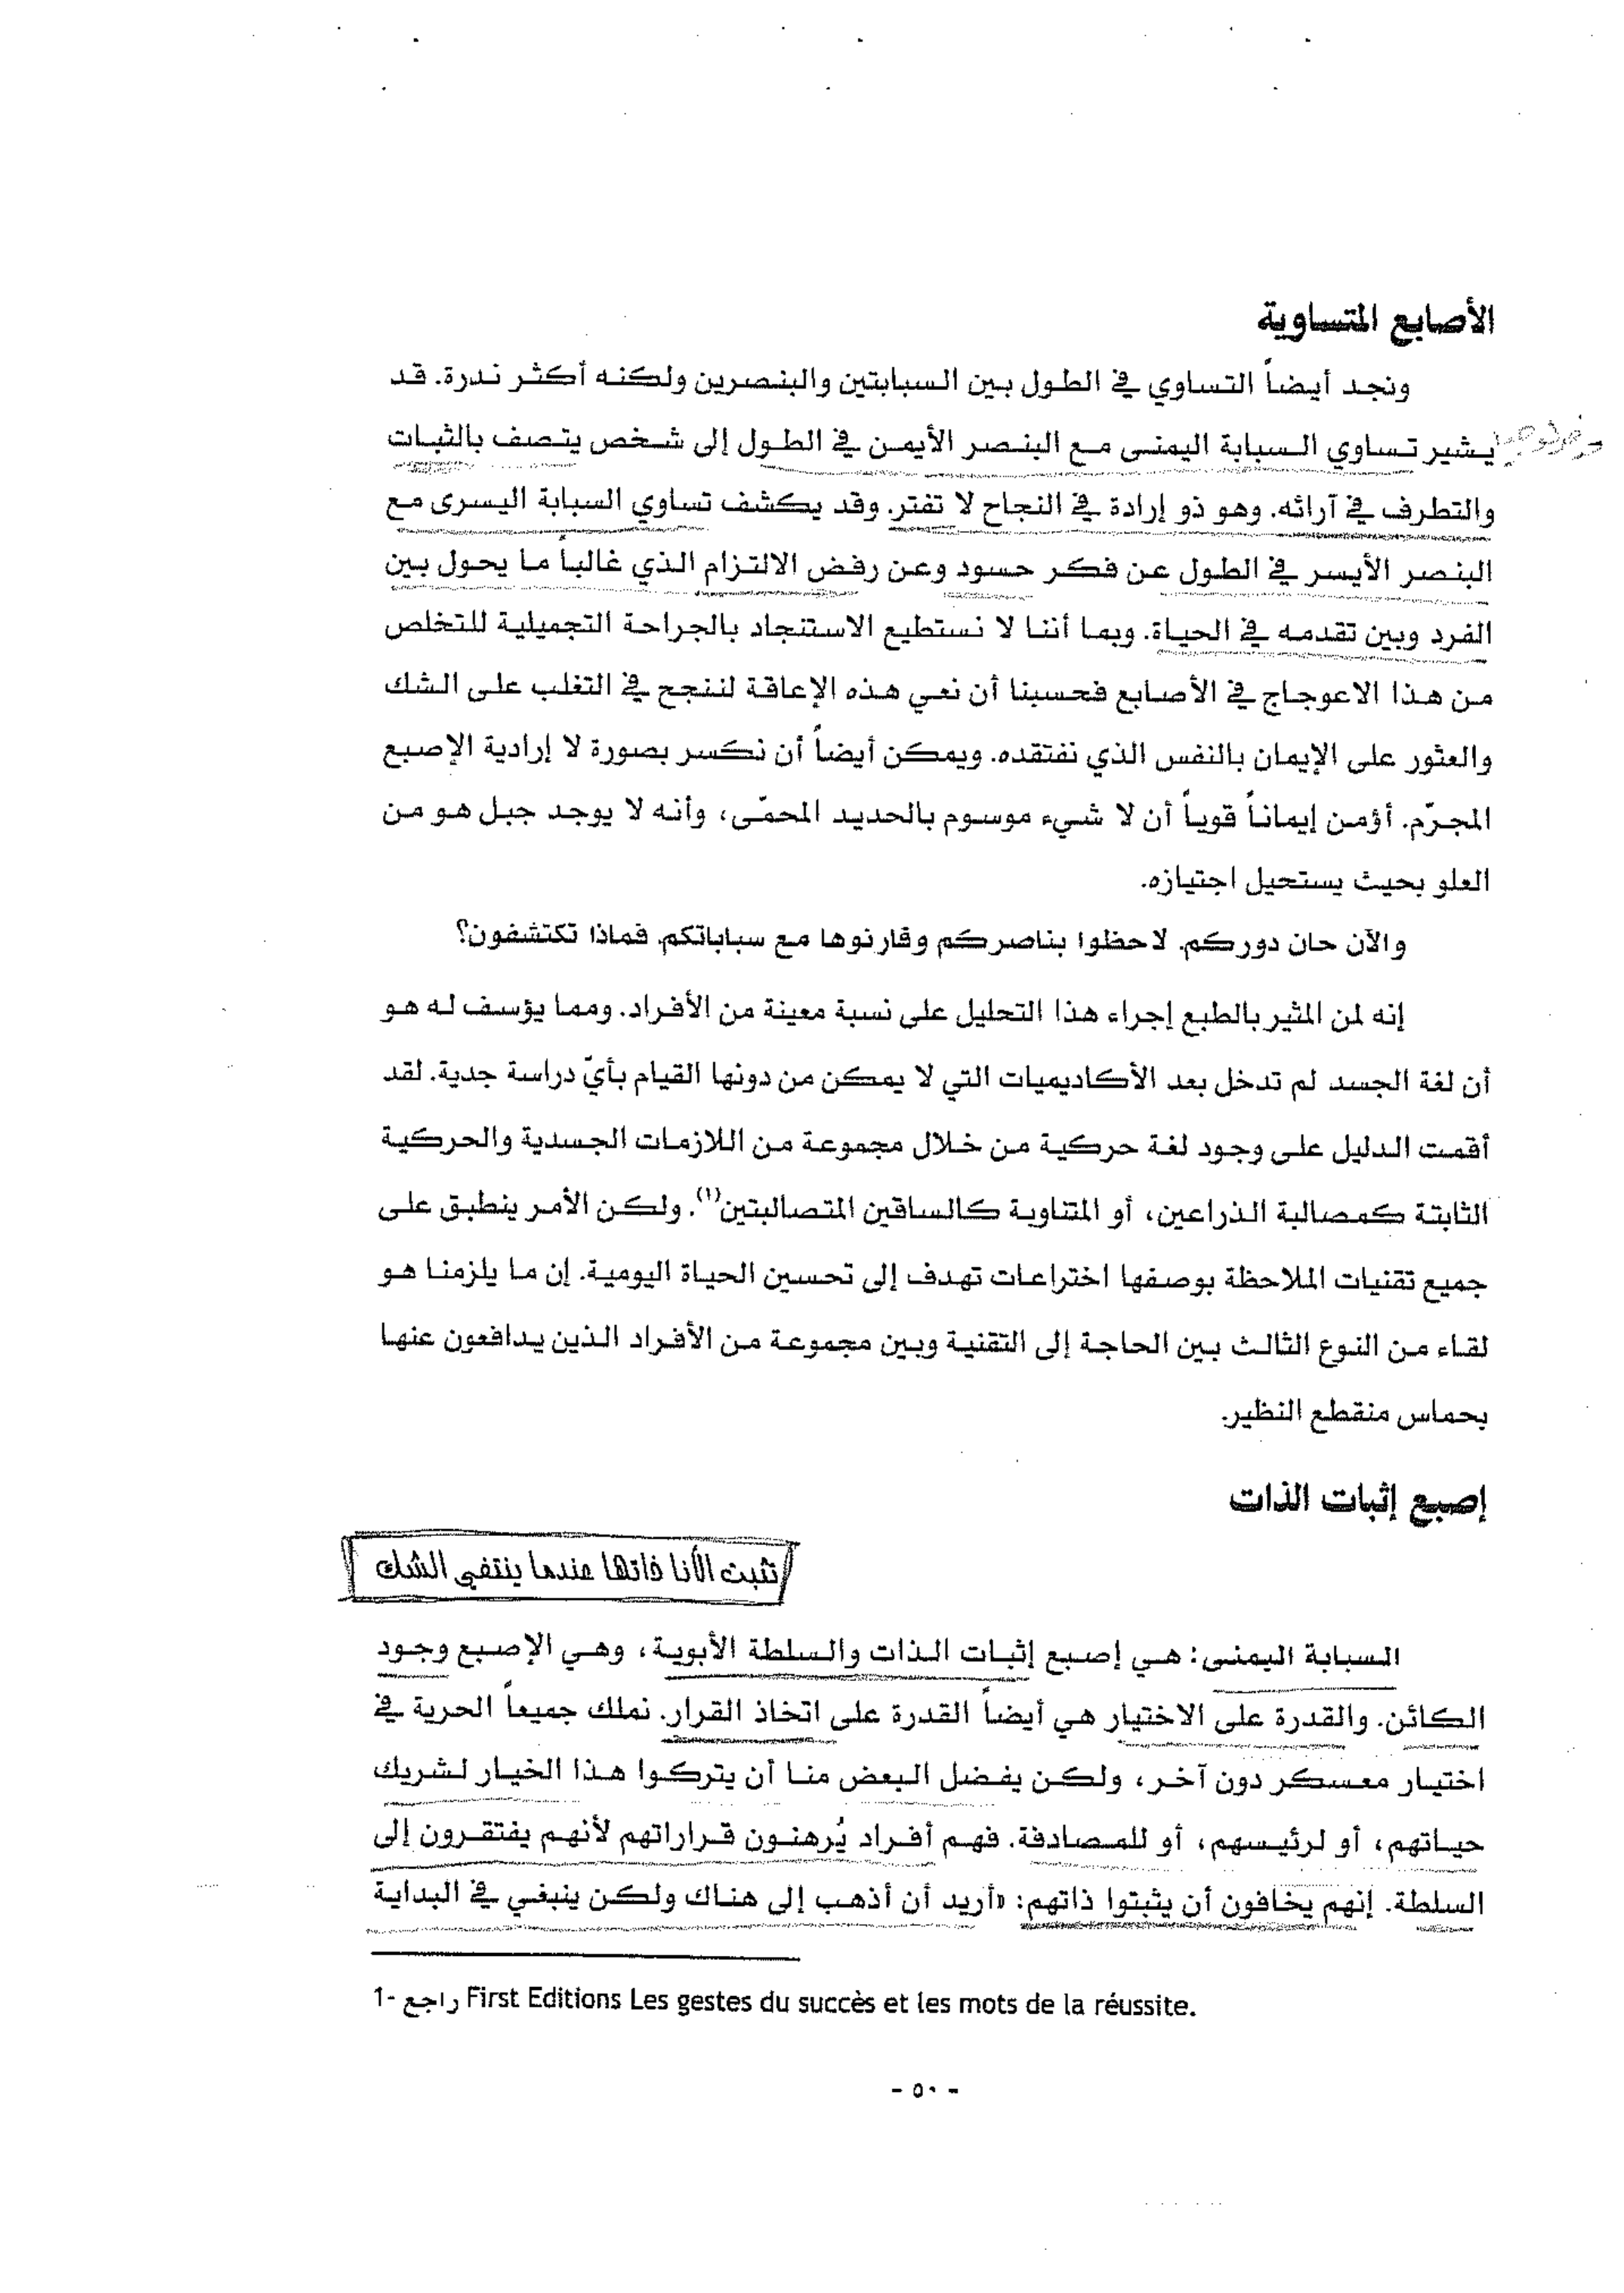 الأصابع المتساوية
ونجد أيضاً التساوي في الطول بين السبابتين والبنصرين ولكنه أكثر ندرة. قد
يشير تساوي السبابة اليمنى مع البنصر الأيمن في الطول إلى شخص يتصف بالثبات
والتطرف في آرائه. وهو ذو إرادة في النجاح لا تفتر. وقد يكشف تساوي السبابة اليسرى مع
البنصر الأيسر في الطول عن فكر حسود وعن رفض الالتزام الذي غالباً ما يحول بين
الفرد وبين تقدمه في الحياة. وبما أننا لا نستطيع الاستنجاد بالجراحة التجميلية للتخلص
من هذا الاعوجاج في الأصابع فحسبنا أن نعي هذه الإعاقة لننجح في التغلب على الشك
والعثور على الإيمان بالنفس الذي نفتقده. ويمكن أيضاً أن نكسر بصورة لا إرادية الإصبع
المجرّم. أؤمن إيماناً قوياً أن لا شيء موسوم بالحديد المحمّى، وأنه لا يوجد جبل هو من
العلو بحيث يستحيل اجتيازه.
والآن حان دوركم. لاحظوا بناصركم وقارنوها مع سباباتكم. فماذا تكتشفون؟
إنه لمن المثير بالطبع إجراء هذا التحليل على نسبة معينة من الأفراد. ومما يؤسف له هو
أن لغة الجسد لم تدخل بعد الأكاديميات التي لا يمكن من دونها القيام بأيّ دراسة جدية. لقد
أقمت الدليل على وجود لغة حركية من خلال مجموعة من اللازمات الجسدية والحركية
الثابتة كمصالبة الذراعين، أو المتناوية كالساقين المتصالبتين(١). ولكن الأمر ينطبق على
جميع تقنيات الملاحظة بوصفها اختراعات تهدف إلى تحسين الحياة اليومية. إن ما يلزمنا هو
لقاء من النوع الثالث بين الحاجة إلى التقنية وبين مجموعة من الأفراد الذين يدافعون عنها
بحماس منقطع النظير.
إصبع إثبات الذات
تثبت الأنا ذاتها عندما ينتفي الشك
السبابة اليمنى: هي إصبع إثبات الذات والسلطة الأبوية، وهي الإصبع وجود
الكائن. والقدرة على الاختيار هي أيضاً القدرة على اتخاذ القرار. نملك جميعاً الحرية في
اختيار معسكر دون آخر، ولكن يفضل البعض منا أن يتركوا هذا الخيار لشريك
حياتهم، أو لرئيسهم، أو للمصادفة. فهم أفراد يُرهنون قراراتهم لأنهم يفتقرون إلى
السلطة. إنهم يخافون أن يثبتوا ذاتهم: «أريد أن أذهب إلى هناك ولكن ينبغي في البداية
1- راجع First Editions Les gestes du succès et les mots de la réussite.
- ٥٠ -